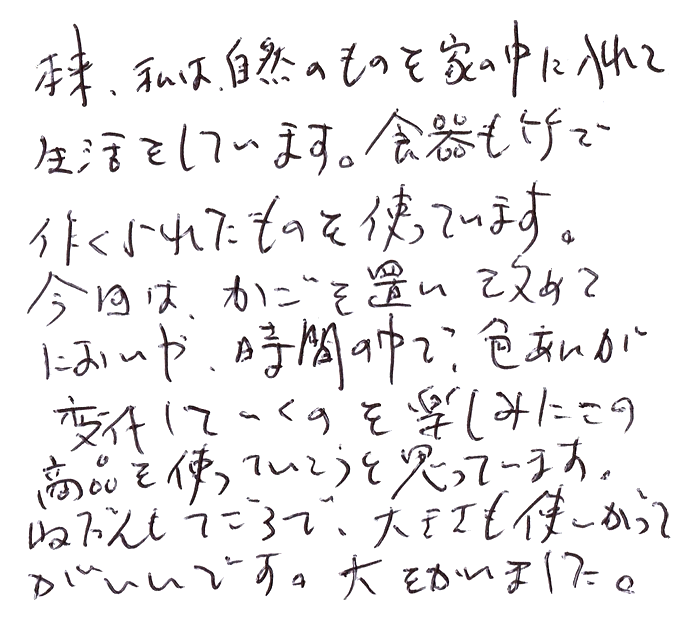 本来、私は、自然のものを家の中に入れて
生活をしています。食器も竹で
作くられたものを使っています。
今回は、かごを置いて改めて
においや、時間の中で、色あいが
変化していくのを楽しみにこの
商品を使っていこうと思っています。
ねだんもてごろで、大きさも使いがって
がいいです。大をかいました。